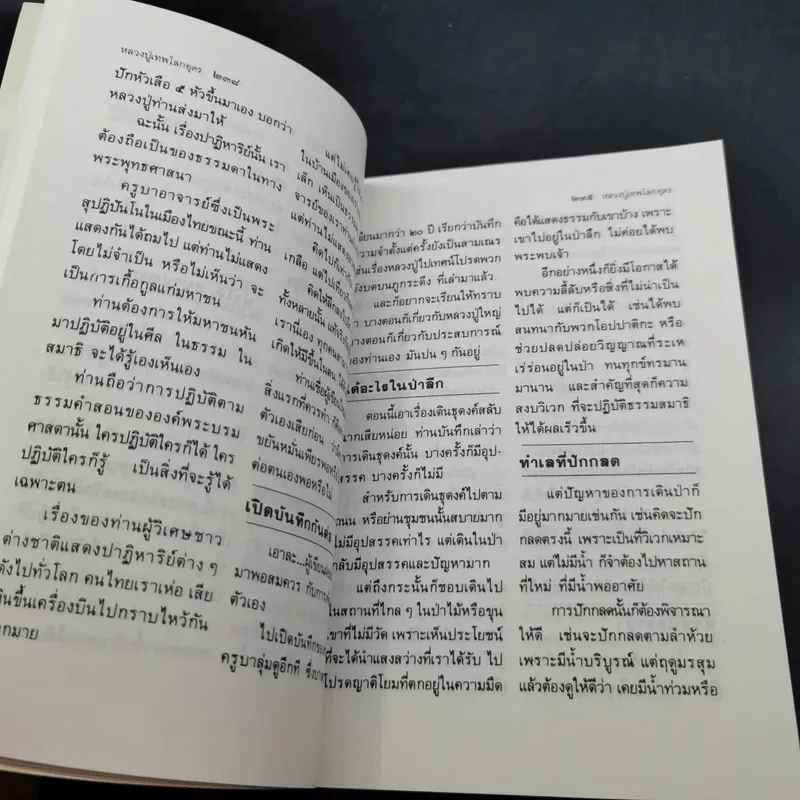 หลวงปู่เทพโลกอุดร ๒๓๘
ปักหัวเสือ ๕ หัวขึ้นมาเอง บอกว่า
หลวงปู่ท่านส่งมาให้
ฉะนั้น เรื่องปาฏิหาริย์นั้น เรา
ต้องถือเป็นของธรรมดาในทาง
พระพุทธศาสนา
ครูบาอาจารย์ซึ่งเป็นพระ
สุปฏิปันโนในเมืองไทยขณะนี้ ท่าน
แสดงกันได้ถมไป แต่ท่านไม่แสดง
โดยไม่จำเป็น หรือไม่เห็นว่า จะ
เป็นการเกื้อกูลแก่มหาชน
ท่านต้องการให้มหาชนหัน
มาปฏิบัติอยู่ในศีล ในธรรม ใน
สมาธิ จะได้รู้เองเห็นเอง
ท่านถือว่าการปฏิบัติตาม
ธรรมคำสอนขององค์พระบรม
ศาสดานั้น ใครปฏิบัติใครก็ได้ ใคร
ปฏิบัติใครก็รู้ เป็นสิ่งที่จะรู้ได้
เฉพาะตน
เรื่องของท่านผู้วิเศษชาว
ต่างชาติแสดงปาฏิหาริย์ต่าง ๆ
ดังไปทั่วโลก คนไทยเราเห่อ เสีย
ขึ้นเครื่องบินไปกราบไหว้กัน
มากมาย
ในบ้านเมืองของเรา
เลิก เห็นเป็นธรรม
จารย์ของเราท่าน
แต่ท่านไม่แสดง
เกลือ แต่ไปเที่ยว
ทั้งหลายนั้น
เรานี่เอง ทุกคน
เกิดให้มีขึ้นในตน
สิ่งแรกที่ควรทำ
ตัวเองเสียก่อน
ขยันหมั่นเพียรพอหรือ
ต่อตนเองพอหรือไม่
เปิดบันทึกกัน
เอาละ...ผู้เขียน
มาพอสมควร กับการ
ตัวเอง
ไปเปิดบันทึกของ
ครูบาลุ่มดูอีกที ซึ่ง
๒๓๕ หลวงปู่เทพโลกอุดร
เขียนมากว่า ๒๐ ปี เรียกว่าบันทึก
ความจำตั้งแต่ครั้งยังเป็นสามเณร
เช่นเรื่องหลวงปู่ไปเทศน์โปรดพวก
บังบดบนภูกระดึง ที่เล่ามาแล้ว
และก็อยากจะเรียนให้ทราบ
บางตอนก็เกี่ยวกับหลวงปู่ใหญ่
บางตอนก็เกี่ยวกับประสบการณ์
ของท่านเอง มันปน ๆ กันอยู่
ได้อะไรในป่าลึก
ตอนนี้เอาเรื่องเดินธุดงค์สลับ
ฉากเสียหน่อย ท่านบันทึกเล่าว่า
การเดินธุดงค์นั้น บางครั้งก็มีอุป-
สรรค บางครั้งก็ไม่มี
สำหรับการเดินธุดงค์ไปตาม
ถนน หรือย่านชุมชนนั้นสบายมาก
ไม่มีอุปสรรคเท่าไร แต่เดินในป่า
กลับมีอุปสรรคและปัญหามาก
แต่ถึงกระนั้นก็ชอบเดินไป
ในสถานที่ไกล ๆ ในป่าไม้หรือขุน
เขาที่ไม่มีวัด เพราะเห็นประโยชน์
ที่จะได้นำแสงสว่างที่เราได้รับ ไป
โปรดญาติโยมที่ตกอยู่ในความมืด
คือได้แสดงธรรมกับเขาบ้าง เพราะ
เขาไปอยู่ในป่าลึก ไม่ค่อยได้พบ
พระพบเจ้า
อีกอย่างหนึ่งก็ยิ่งมีโอกาสได้
พบความลี้ลับหรือสิ่งที่ไม่น่าเป็น
ไปได้ แต่ก็เป็นได้ เช่นได้พบ
สนทนากับพวกโอปปาติกะ หรือ
ช่วยปลดปล่อยวิญญาณที่ระเห
เร่ร่อนอยู่ในป่า ทนทุกข์ทรมาน
มานาน และสำคัญที่สุดก็ความ
สงบวิเวก ที่จะปฏิบัติธรรมสมาธิ
ให้ได้ผลเร็วขึ้น
ทำเลที่ปักกลด
แต่ปัญหาของการเดินป่าก็
มีอยู่มากมายเช่นกัน เช่นคิดจะปัก
กลดตรงนี้ เพราะเป็นที่วิเวกเหมาะ
สม แต่ไม่มีน้ำ ก็จำต้องไปหาสถาน
ที่ใหม่ ที่มีน้ำพออาศัย
การปักกลดนั้นก็ต้องพิจารณา
ให้ดี เช่นจะปักกลดตามลำห้วย
เพราะมีน้ำบริบูรณ์ แต่ฤดูมรสุม
แล้วต้องดูให้ดีว่า เคยมีน้ำท่วมหรือ